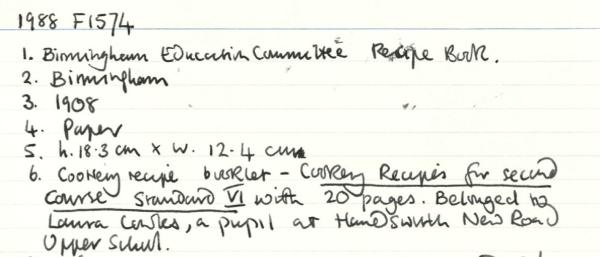 1988 F1574
1. Birmingham Education Committee Recipe Book.
2. Birmingham
3. 1908
4. Paper
5. h. 18.3 cm x w. 12.4 cm
6. Cookery recipe booklet - Cookery Recipes for second
Course Standard VI with 20 pages. Belonged to
Laura Cowles, a pupil at Handsworth New Road
Upper School.